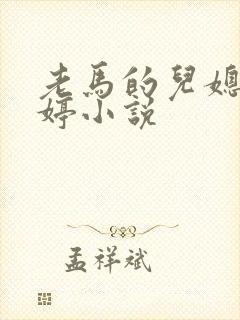 老馬的兒媳
婷小說
孟祥斌